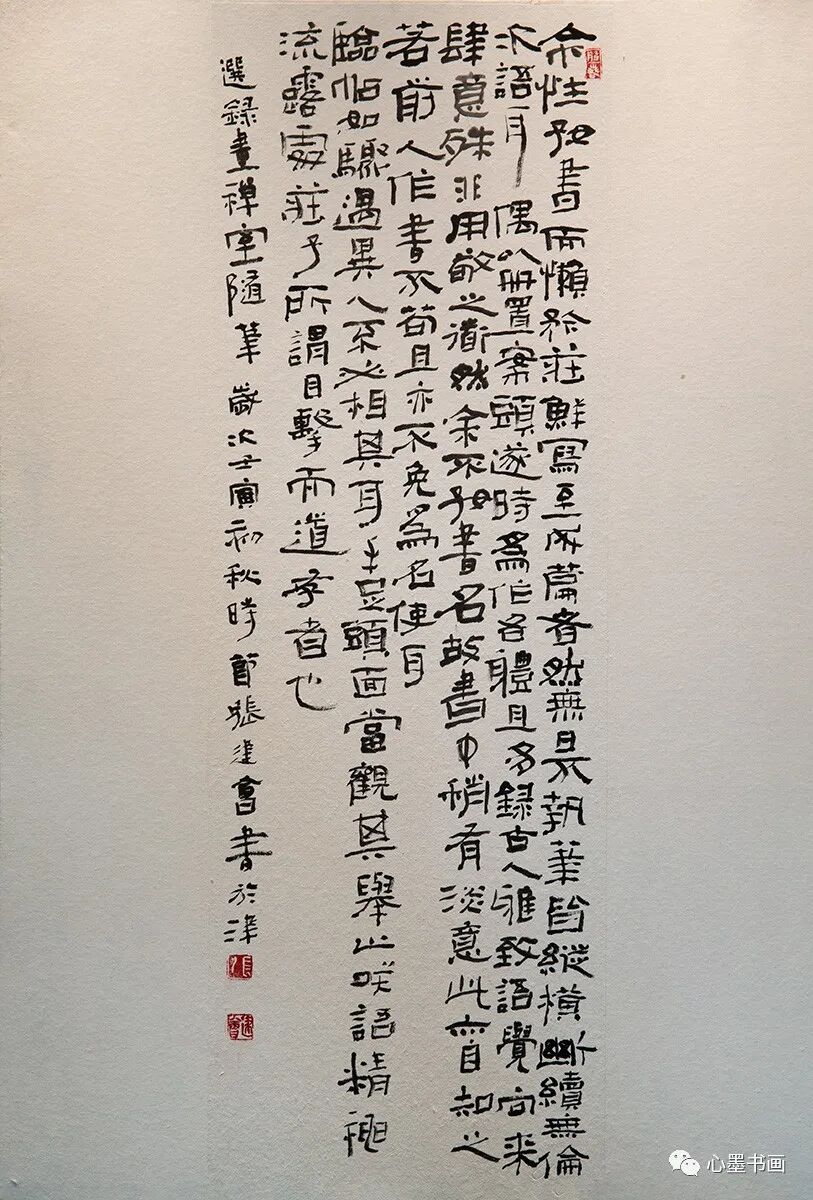 余性好書而懶矜莊鮮寫至成篇者然無日不執筆皆縱橫斷續無倫
次語耳偶以冊置案頭遂時為作各體且多錄古人雅致語覺向來
肆意殊非用敬之道然余不好書名故書中稍有淡意此亦自知之
若前人作書不苟且亦不免為名使耳
臨帖如驟遇異人不必相其耳手足頭面當觀其舉止咲語精神
流露處莊子所謂目擊而道存者也
選錄畫禪室隨筆歲次壬寅初秋時節張建會書於津
建會
心墨书画